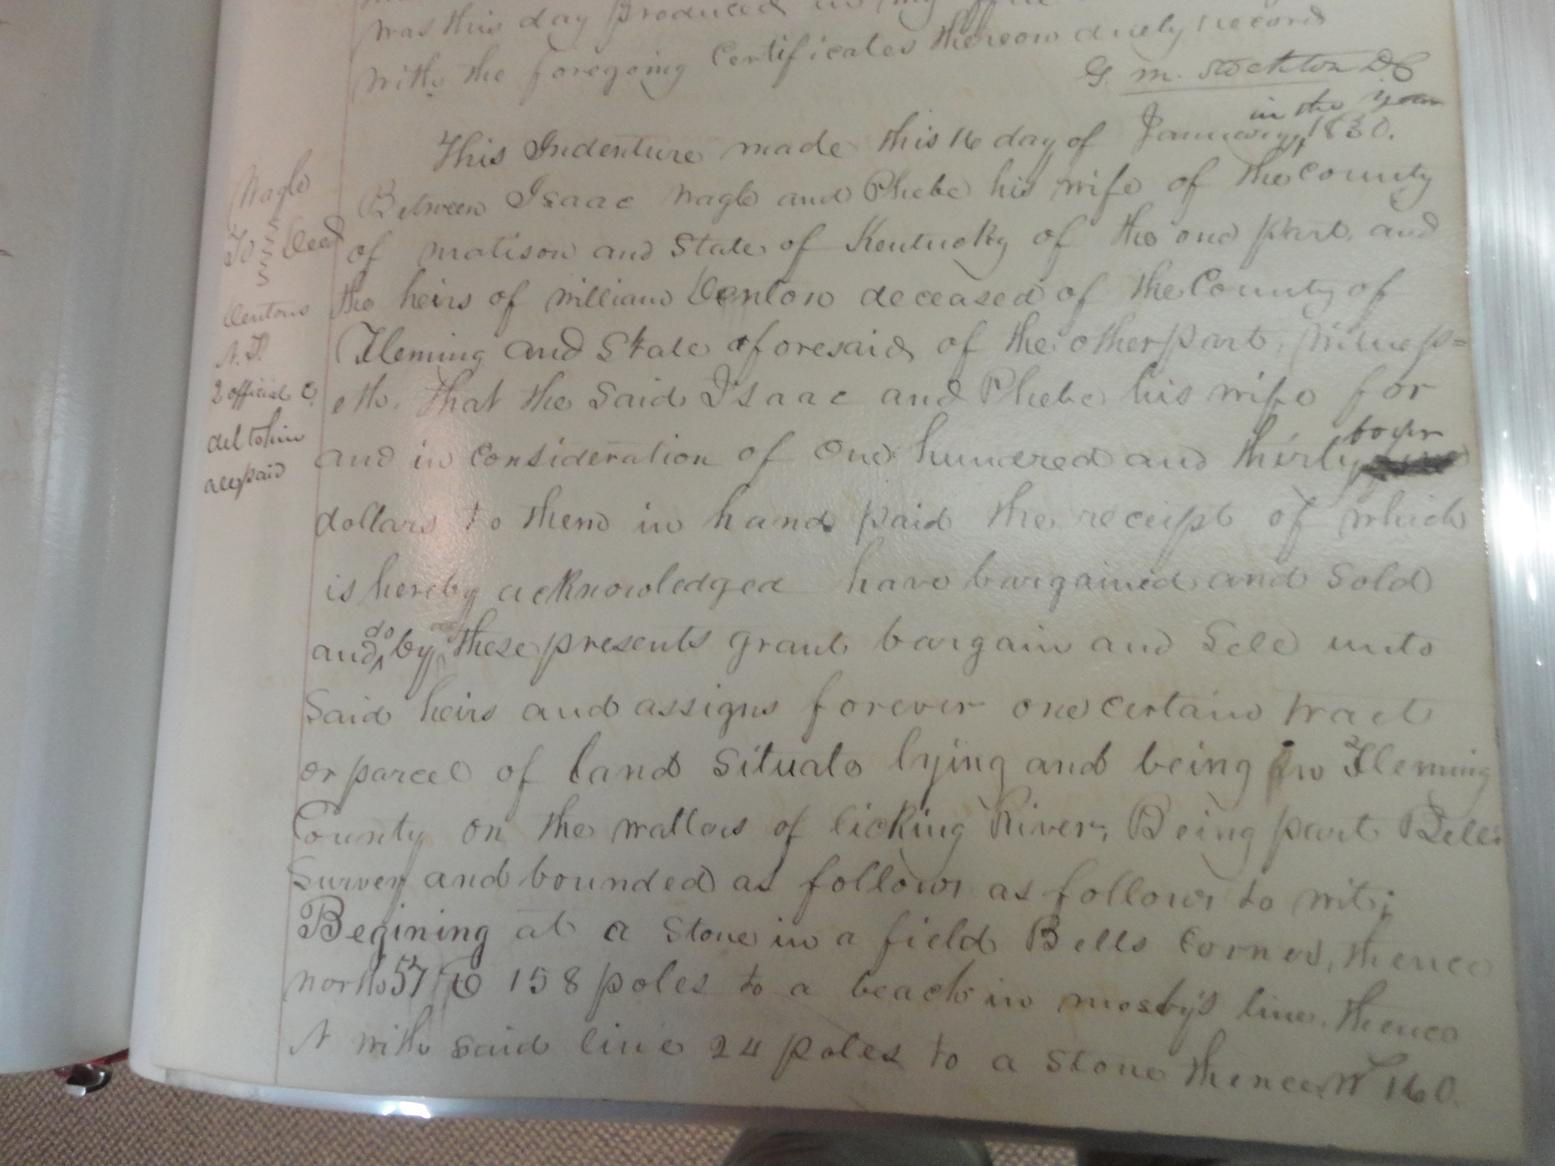 was this day produced in my office
with the foregoing Certificates thereon duely record
G. M. Stockton D.C
This Indenture made this 16 day of January in the year 1830.
Between Isaac Nagle and Phebe his wife of the County
of Matison and State of Kentucky of the one part and
the heirs of William Denton deceased of the County of
Fleming and State aforesaid of the other part, Witness=
eth, that the Said Isaac and Phebe his wife for
and in consideration of One hundred and thirty four
dollars to them in hand paid the receipt of which
is hereby acknowledged have bargained and Sold
and do by these presents grant bargain and Sell unto
Said heirs and assigns forever one certain tract
or parcel of land Situate lying and being in Fleming
County on the wattors of licking River, Being part Bells
Survey and bounded as follows as follows to wit;
Begining at a Stone in a field Bells Corner, thence
North 57 E 158 poles to a beach in mosby's line. thence
N with said line 24 poles to a Stone thence W 160.
Nagle
To Deed
Dentons
2 official C
del to him
all paid